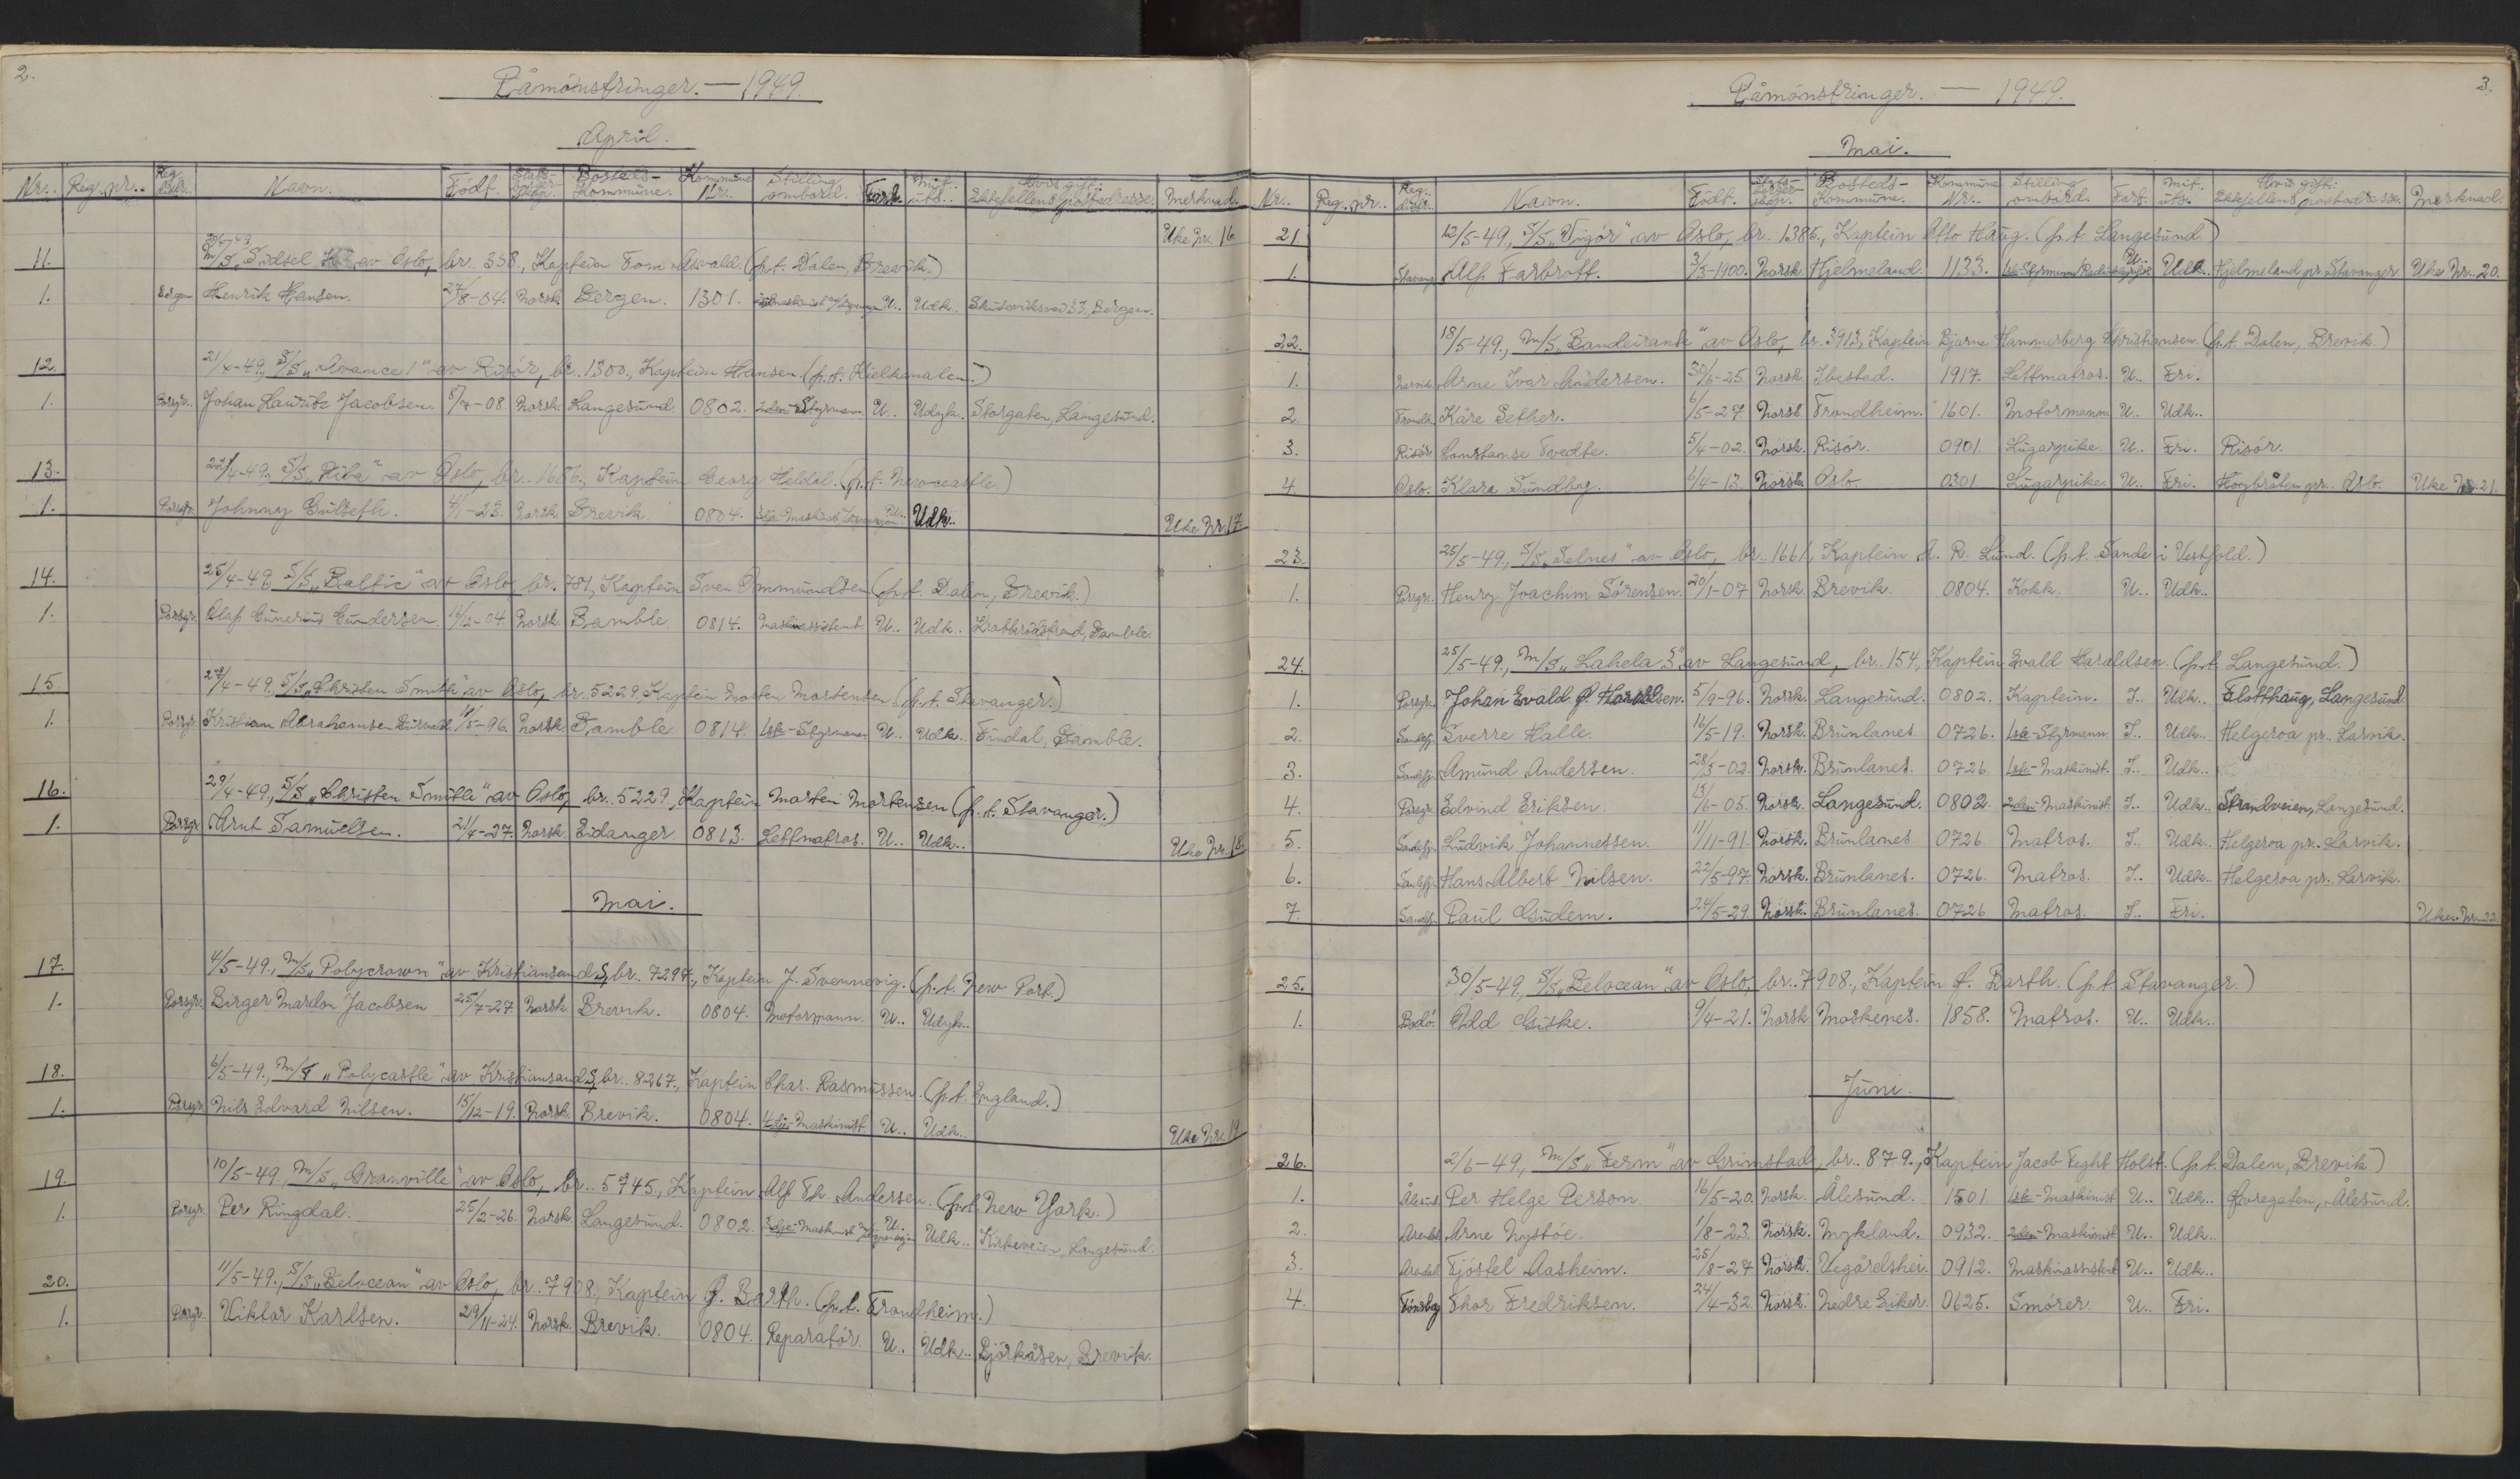 2.
Påmønstringer. — 1949.
April.
Nr. Reg. nr. Reg. distr. Navn. Født. Stats-borger-skap. Bosteds-kommune. Kommune Nr. Stilling ombord. Fart. Mil. uts. Hvis gift: Ektefellens postadresse. Merknad.
Uke Nr. 16
11. M/S „Sidsel av Oslo, br. 358., Kaptein Tom Asvald. (p.t. Dalen, Brevik.)
1. Bergen Henrik Hansen. 27/8-04. Norsk Bergen. 1301. U.. Udk. Skuteviksvei 33, Bergen.
12. 21/4-49., S/S „Avance I" av Risör, br. 1300., Kaptein Hansen. (p.t. Kielkanalen.)
1. Porsgr. Johan Lauritz Jacobsen. 5/7-08 Norsk. Langesund. 0802. 2den-Styrmann. U.. Udyk. Storgaten, Langesund.
13. 22/4-49., S/S „Rita" av Oslo, br. 1656., Kaptein Georg Heldal. (p.t. Newcastle.)
1. Porsgr. Johnny Gulseth. 4/1-23. Norsk. Brevik. 0804. U.. Udk..
Uke Nr. 17
14. 25/4-49, S/S „Baltic" av Oslo, br. 781, Kaptein Sven Ommundsen (p.t. Dalen, Brevik.)
1. Porsgr. Olaf Gunerius Gundersen. 14/2-04. Norsk Bamble. 0814. Maskinassistent. U.. Udk. Krabberödstrand, Bamble.
15. 27/4-49. S/S „Christen Smith" av Oslo, br. 5229. Kaptein Morten Mortensen. (p.t. Stavanger.)
1. Porsgr. Kristian Abrahamsen 14/5-96. Norsk Bamble 0814. 1ste-Styrmann U.. Udk.. Findal, Bamble.
16. 29/4-49., S/S „Christen Smith" av Oslo, br. 5229., Kaptein Morten Mortensen (p.t. Stavanger.)
1. Porsgr. Arnt Samuelsen. 21/4-27. Norsk. Eidanger 0813. Lettmatros. U.. Udk..
Uke Nr. 18.
Mai.
17. 4/5-49., M/S „Polycrown" av Kristiansand S, br. 7297., Kaptein J. Svennevig. (p.t. New Port.)
1. Porsgr. Birger Mardon Jacobsen 25/7-27. Norsk Brevik. 0804. Motormann. U.. Udyk..
18. 6/5-49., M/T „Polycastle" av Kristiansand S, br. 8267., Kaptein Chas. Rasmussen. (p.t. England.)
1. Porsgr. Nils Edvard Nilsen. 15/12-19. Norsk. Brevik. 0804. 4dje-Maskinist. U.. Udk..
Uke Nr. 19
19. 10/5-49. M/S „Granville" av Oslo, br. 5745, Kaptein Alf Th. Andersen. (p.t. New York.)
1. Porsgr. Per Ringdal. 25/2-26. Norsk. Langesund. 0802. U.. Udk.. Kirkeveien, Langesund.
20. 11/5-49., S/S „Belocean" av Oslo, br. 7908., Kaptein Ø. Barth. (p.t. Trondheim.)
1. Porsgr. Viktor Karlsen. 29/11-24. Norsk. Brevik. 0804. Reparatör. U.. Udk.. Björkåsen, Brevik.
3.
Påmønstringer. — 1949.
Mai.
Nr. Reg. nr. Reg. distr. Navn. Født. Stats-borger-skap. Bosteds-Kommune. Kommune Nr. Stilling ombord. Fart. Mil. uts. Hvis gift: Ektefellens postadresse. Merknad.
21. 12/5-49., S/S „Vigör" av Oslo, br. 1385., Kaptein Otto Haug. (p.t. Langesund)
1. Stavang. Alf Farbrott. 3/3-1900. Norsk Hjelmeland. 1133. U.. Udk.. Hjelmeland pr. Stavanger Uke Nr. 20.
22. 18/5-49., M/S „Bandeirante" av Oslo, br. 3913, Kaptein Bjarne Hammerberg Christiansen. (p.t. Dalen, Brevik.)
1. Narvik. Arne Ivar Andersen. 30/6-25. Norsk. Ibestad. 1917. Lettmatros. U.. Fri.
2. Trondh. Kåre Sether. 6/5-27. Norsk Trondheim. 1601. Motormann. U.. Udk..
3. Risör Constanse Tvedte. 5/4-02. Norsk. Risör. 0901. Lugarpike. U.. Fri. Risör.
4. Oslo. Klara Sundbog. 6/4-13. Norsk. Oslo 0301. Lugarpike. U.. Fri. Höybråten pr. Oslo. Uke Nr. 21.
23. 25/5-49., S/S „Selnes" av Oslo, br. 1661, Kaptein A. R. Lund. (p.t. Sande i Vestfold.)
1. Porsgr. Henry Joachim Sörensen. 20/1-07 Norsk Brevik. 0804. Kokk. U.. Udk..
24. 25/5-49., M/S „Lahela 3" av Langesund, br. 154, Kaptein Evald Haraldsen. (p.t. Langesund.)
1. Porsgr. Johan Evald Ø. Haraldsen. 5/9-96. Norsk. Langesund. 0802. Kaptein. I.. Udk.. Flotthaug, Langesund
2. Sandefj. Sverre Halle. 16/5-19. Norsk. Brunlanes. 0726. 1ste-Styrmann I.. Udk.. Helgeroa pr. Larvik.
3. Sandefj. Amund Andersen. 28/3-02. Norsk. Brunlanes. 0726. 1ste-Maskinist. I.. Udk..
4. Porsgr. Edvind Eriksen. 13/6-05. Norsk. Langesund. 0802. 2den-Maskinist. I.. Udk.. Strandveien, Langesund.
5. Sandefj. Ludvik Johannessen. 11/11-91. Norsk. Brunlanes 0726. Matros. I.. Udk.. Helgeroa pr. Larvik.
6. Sandefj. Hans Albert Nilsen. 22/5-97. Norsk. Brunlanes. 0726. Matros. I.. Udk.. Helgeroa pr. Larvik.
7. Sandefj. Paul Gudem. 24/5-29. Norsk. Brunlanes. 0726 Matros. I.. Fri. Uke Nr. 22
25. 30/5-49., S/S „Belocean" av Oslo, br. 7908., Kaptein Ø. Barth. (p.t. Stavanger.)
1. Bodö. Odd Giske. 9/4-21. Norsk Moskenes. 1858. Matros. U.. Udk..
Juni.
26. 2/6-49., M/S „Ferm" av Grimstad, br. 879., Kaptein Jacob Feght Holst. (p.t. Dalen, Brevik)
1. Ålesund Per Helge Person. 16/5-20. Norsk. Ålesund. 1501. 1ste-Maskinist U.. Udk.. Øvregaten, Ålesund.
2. Arendal. Arne Nystöe. 1/8-23. Norsk. Mykland. 0932. 2den-Maskinist U.. Udk..
3. Arendal. Tjöstel Aasheim. 25/8-27 Norsk. Vegårdshei. 0912. Maskinassistent U.. Udk..
4. Tönsbg Thor Fredriksen. 24/4-32. Norsk. Nedre Eiker. 0625. Smörer. U.. Fri.